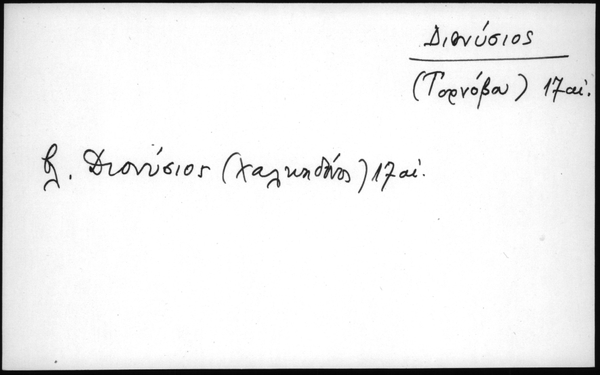 Διονύσιος
(Τορνόβου) 17 αἰ.
βλ. Διονύσιος (Χαλκηδόνος) 17 αἰ.